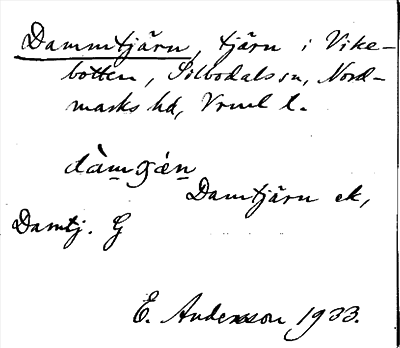 Dammtjärn, tjärn i Vike-
botten, Silbodals sn, Nord-
marks hd, Vrml l.
dàmɟǽn
Damtjärn ek,
Damtj. G
E. Andersson 1933.